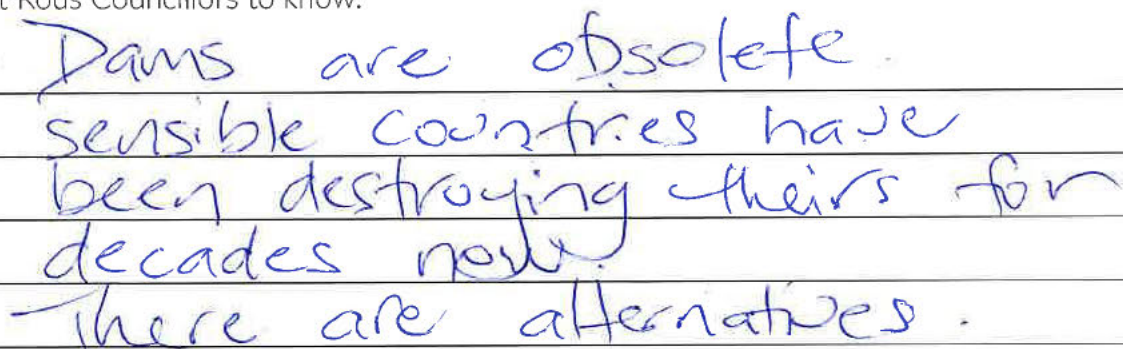 t Rous Councillors to know.
Dams are obsolete.
sensible countries have
been destroying theirs for
decades now.
There are alternatives.